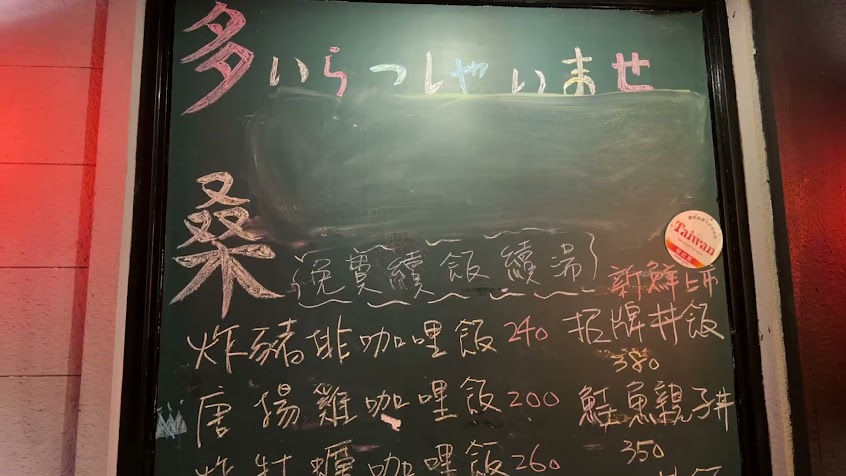 多 いらっしゃいませ
桑
免費續飯續湯
新鮮上市
炸豬排咖哩飯 240
招牌丼飯
380
唐揚雞咖哩飯 200
鮭魚親子丼
350
炸牡蠣咖哩飯 260
Taiwan